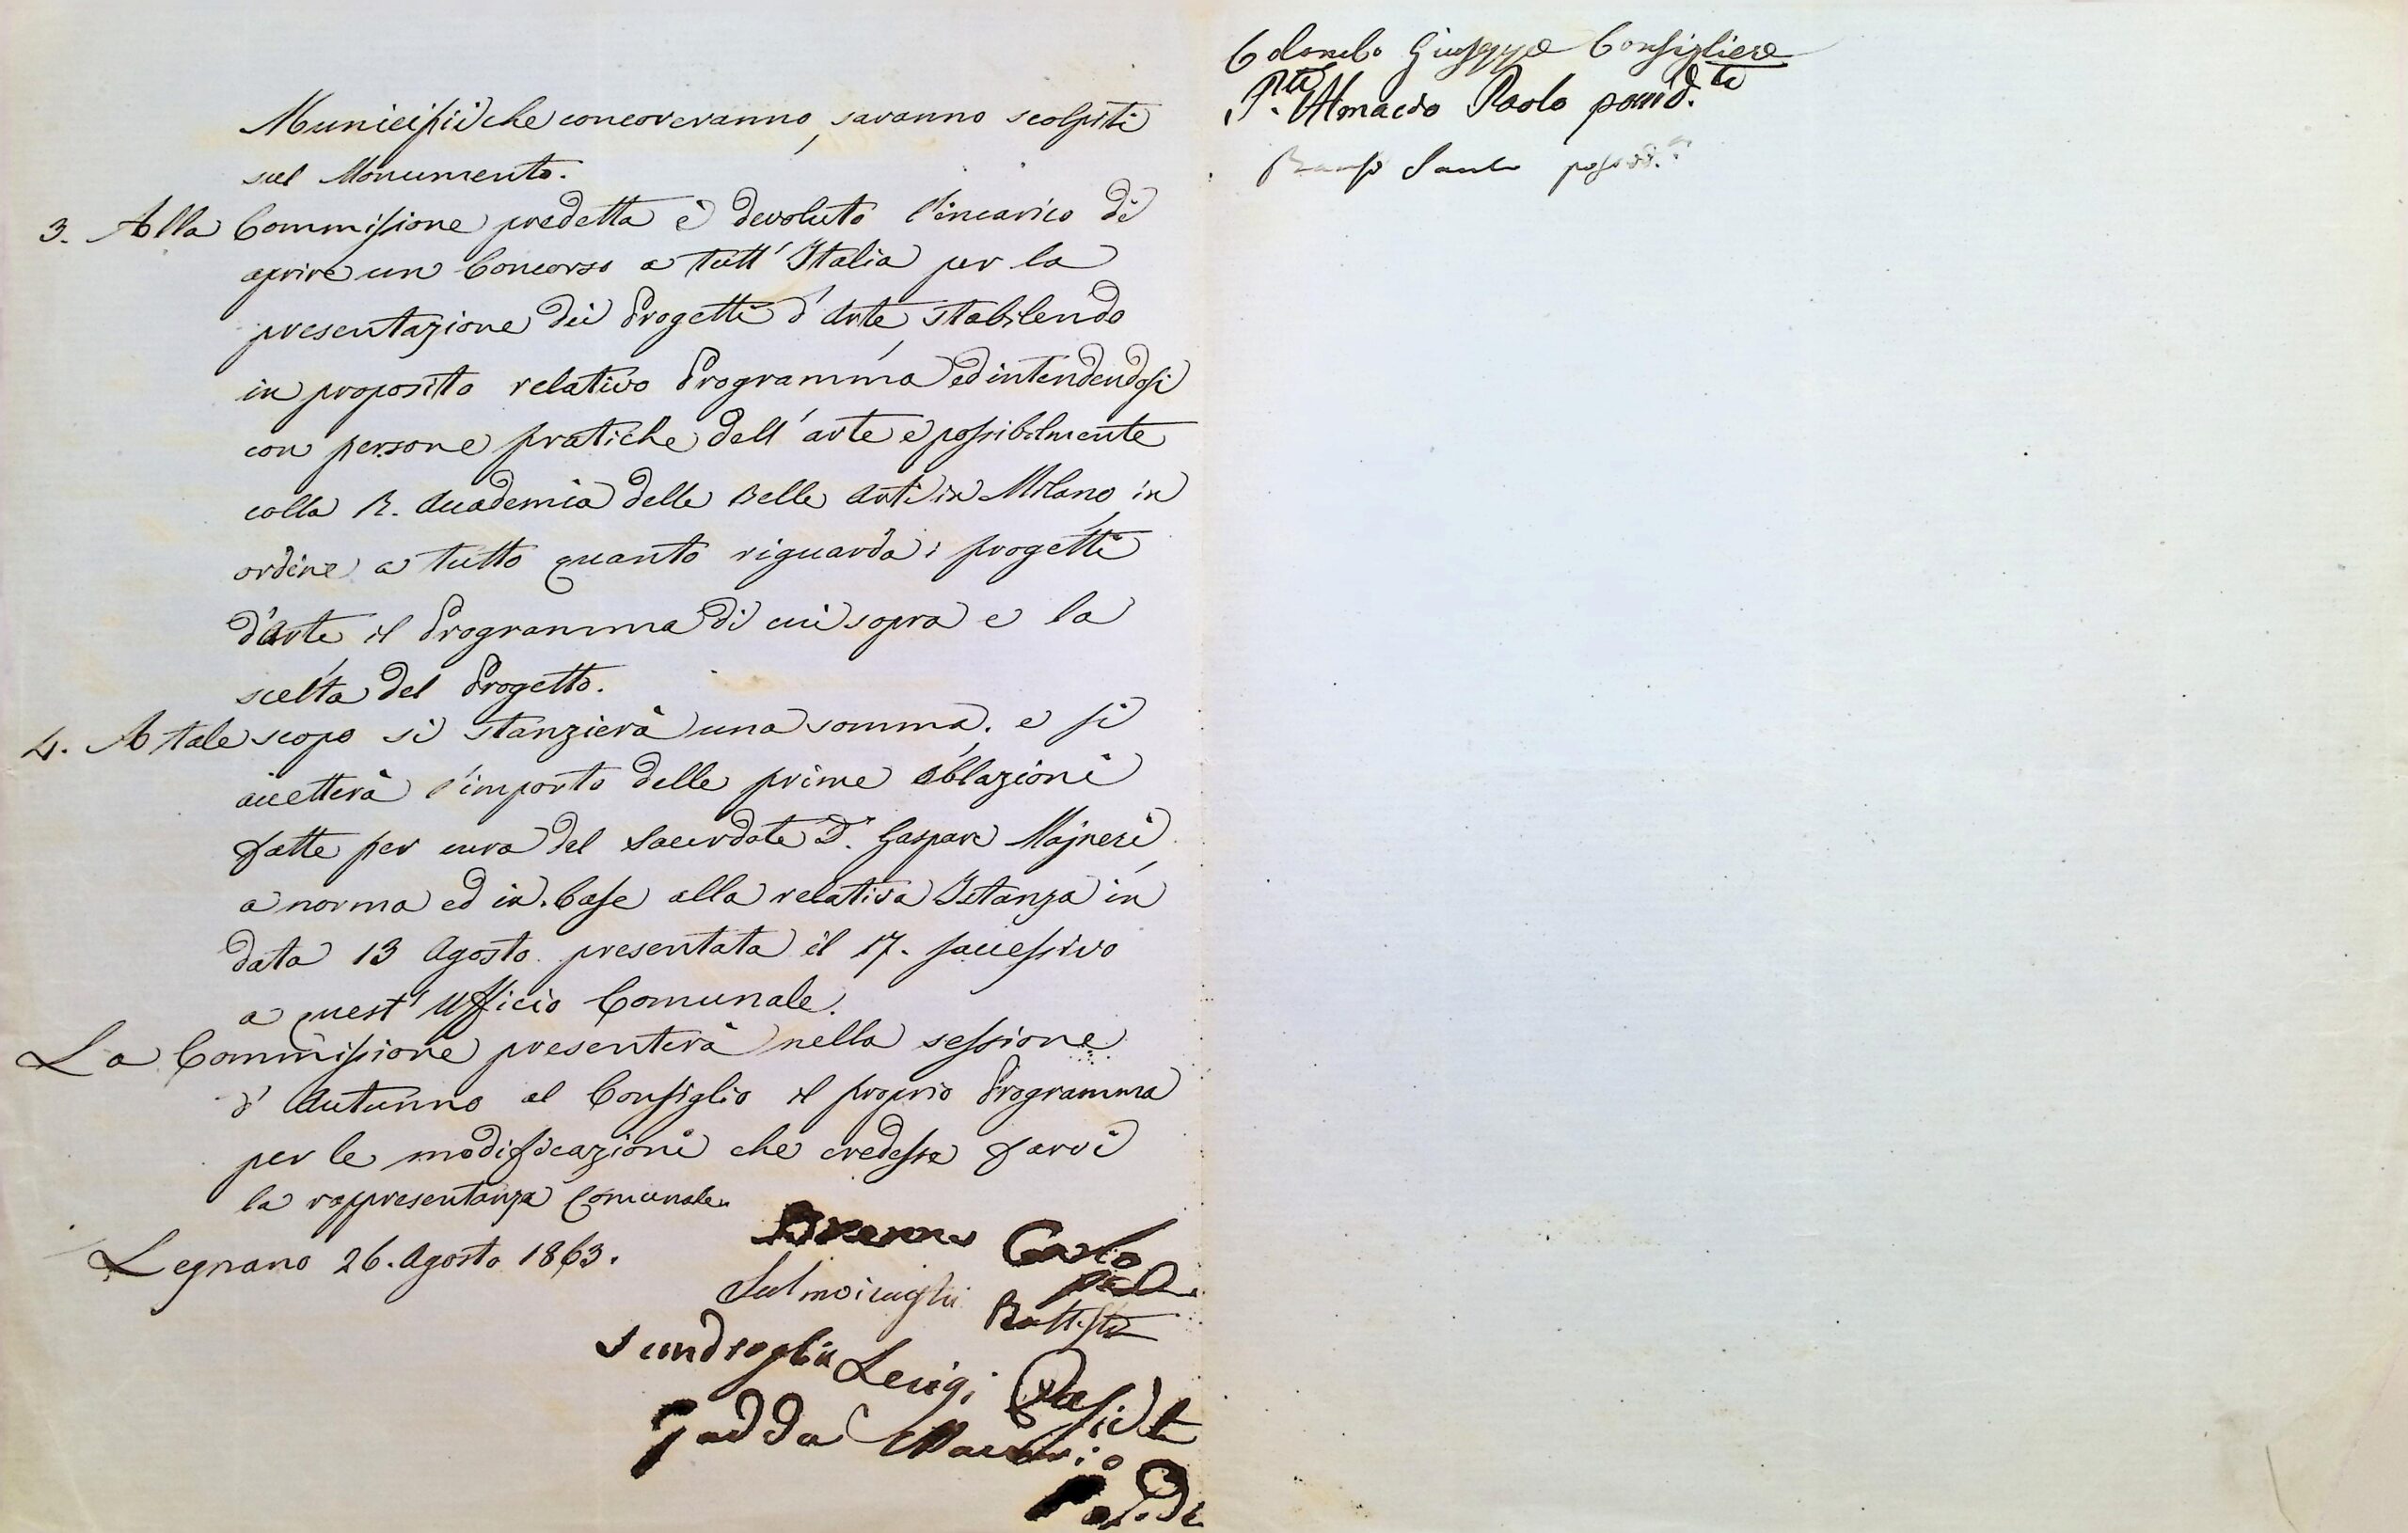 Municipii che concorreranno, saranno scolpiti
sul Monumento.
3. Alla Commissione predetta è devoluto l'incarico di
aprire un Concorso a tutt'Italia per la
presentazione dei Progetti d'Arte, stabilendo
in proposito relativo Programma, ed intendendosi
con persone pratiche dell'arte e possibilmente
colla R. Accademia delle Belle Arti in Milano, in
ordine a tutto quanto riguarda i progetti
d'Arte, il Programma di cui sopra e la
scelta del Progetto.
4. A tale scopo si stanzierà una somma, e si
accetterà l'importo delle prime oblazioni
fatte per cura del Sacerdote Dr. Gaspare Majneri,
a norma ed in base alla relativa Istanza in
data 13 Agosto presentata il 17. successivo
a quest'Ufficio Comunale.
La Commissione presenterà nella sessione
d'Autunno al Consiglio il proprio Programma
per le modificazioni che credesse farvi
la rappresentanza Comunale.
Legnano 26. Agosto 1863.
Brenno Carlo
Salmoiraghi Battista
Luigi
Gadda
Colombo Giuseppe Consigliere
Paolo possid.te